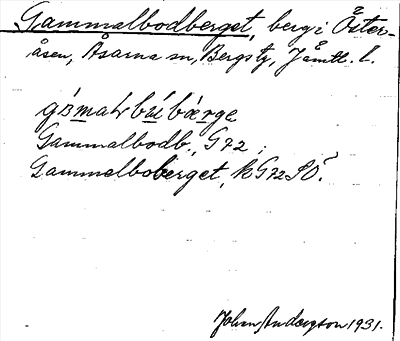 Gammalbodberget, berg i Öster-
åsen, Åsarna sn, Bergs tg, Jämtl. l.
Gammalbodb., G72;
Gammelboberget, kG72SO.
John Andersson 1931.